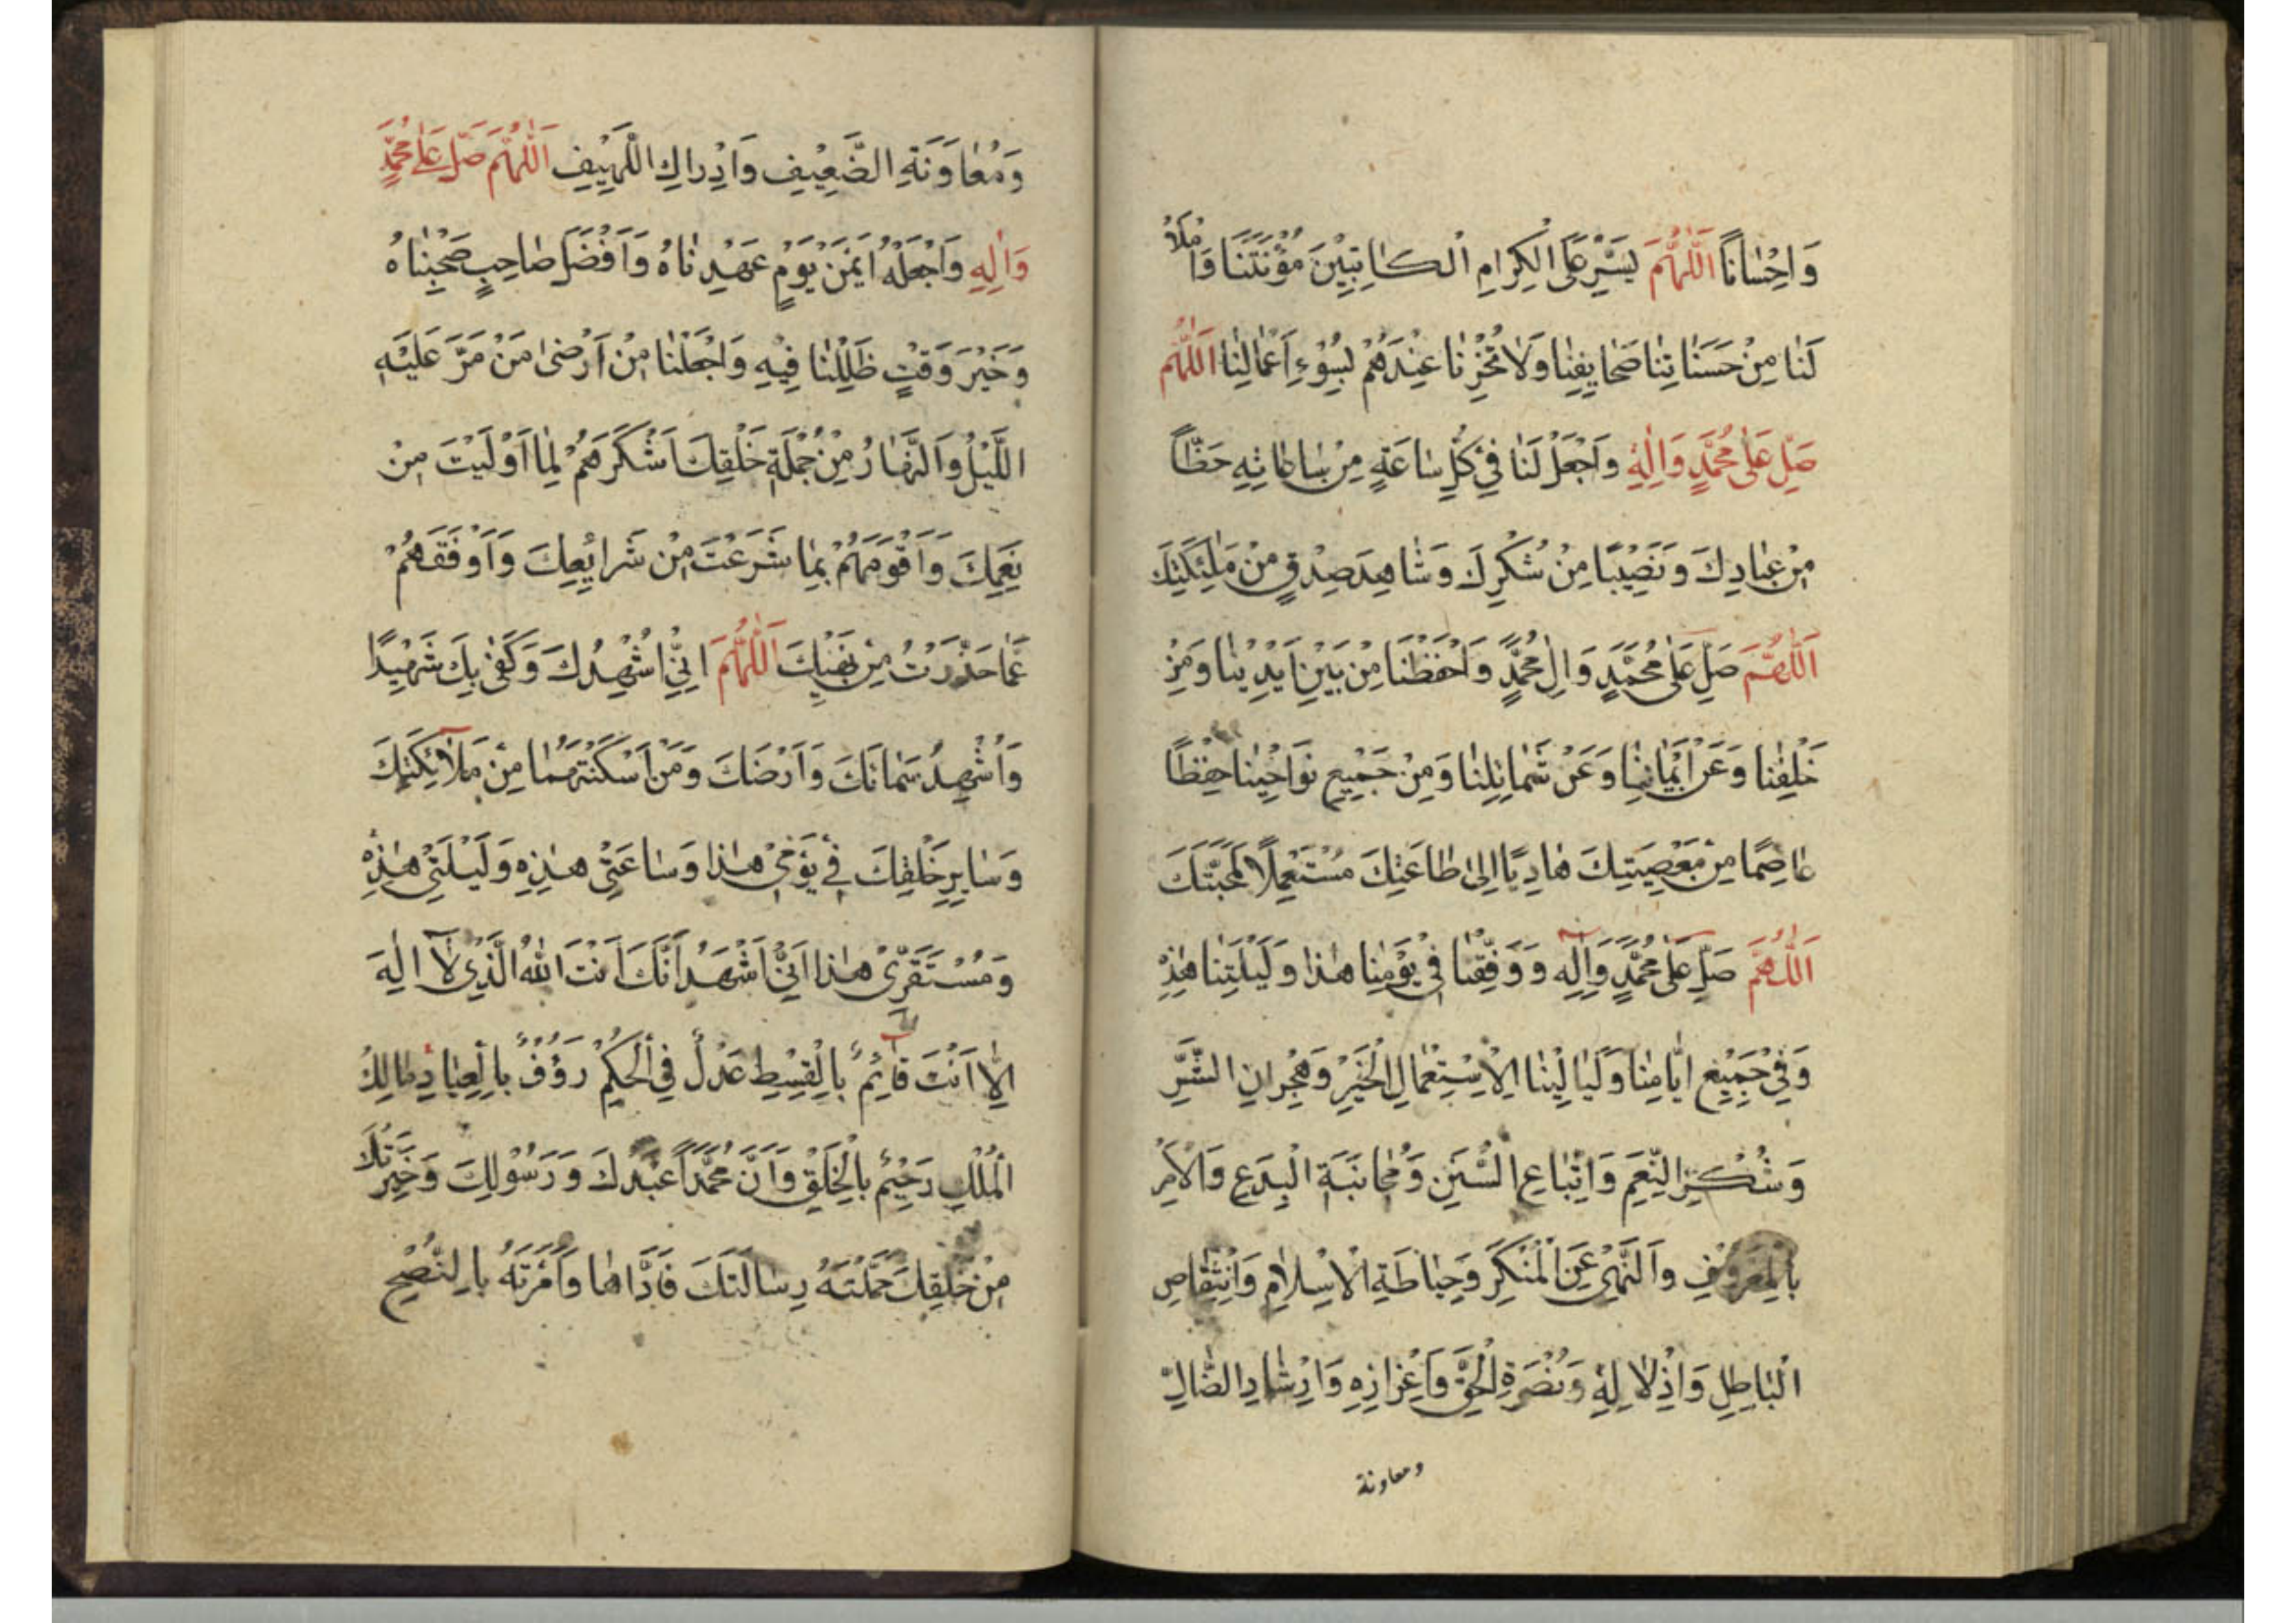 وَاِحْسَانًا اَللّٰهُمَّ يَسِّرْ عَلَى الْكِرَامِ الْكَاتِبِيْنَ مُؤْنَتَنَا وَامْلَأْ
لَنَا مِنْ حَسَنَاتِنَا صَحَايِفَنَا وَلَا تُخْزِنَا عِنْدَهُمْ بِسُوْءِ اَعْمَالِنَا اَللّٰهُمَّ
صَلِّ عَلٰى مُحَمَّدٍ وَاٰلِهِ وَاجْعَلْ لَنَا فِيْ كُلِّ سَاعَةٍ مِنْ سَاعَاتِهِ حَظًّا
مِنْ عِبَادِكَ وَنَصِيْبًا مِنْ شُكْرِكَ وَشَاهِدَ صِدْقٍ مِنْ مَلٰئِكَتِكَ
اَللّٰهُمَّ صَلِّ عَلٰى مُحَمَّدٍ وَاٰلِ مُحَمَّدٍ وَاحْفَظْنَا مِنْ بَيْنِ اَيْدِيْنَا وَمِنْ
خَلْفِنَا وَعَنْ اَيْمَانِنَا وَعَنْ شَمَائِلِنَا وَمِنْ جَمِيْعِ نَوَاحِيْنَا حِفْظًا
عَاصِمًا مِنْ مَعْصِيَتِكَ هَادِيًا اِلٰى طَاعَتِكَ مُسْتَعْمِلًا لِمَحَبَّتِكَ
اَللّٰهُمَّ صَلِّ عَلٰى مُحَمَّدٍ وَاٰلِهِ وَوَفِّقْنَا فِيْ يَوْمِنَا هٰذَا وَلَيْلَتِنَا هٰذِهِ
وَفِيْ جَمِيْعِ اَيَّامِنَا وَلَيَالِيْنَا لِاِسْتِعْمَالِ الْخَيْرِ وَهِجْرَانِ الشَّرِّ
وَشُكْرِ النِّعَمِ وَاتِّبَاعِ السُّنَنِ وَمُجَانَبَةِ الْبِدَعِ وَالْاَمْرِ
بِالْمَعْرُوْفِ وَالنَّهْيِ عَنِ الْمُنْكَرِ وَحِيَاطَةِ الْاِسْلَامِ وَانْتِقَاصِ
الْبَاطِلِ وَاِذْلَالِهِ وَنُصْرَةِ الْحَقِّ وَاِعْزَازِهِ وَاِرْشَادِ الضَّالِّ
ومعاونة
وَمُعَاوَنَةِ الضَّعِيْفِ وَاِدْرَاكِ اللَّهِيْفِ اَللّٰهُمَّ صَلِّ عَلٰى مُحَمَّدٍ
وَاٰلِهِ وَاجْعَلْهُ اَيْمَنَ يَوْمٍ عَهِدْنَاهُ وَاَفْضَلَ صَاحِبٍ صَحِبْنَاهُ
وَخَيْرَ وَقْتٍ ظَلِلْنَا فِيْهِ وَاجْعَلْنَا مِنْ اَرْضٰى مَنْ مَرَّ عَلَيْهِ
اللَّيْلُ وَالنَّهَارُ مِنْ جُمْلَةِ خَلْقِكَ اَشْكَرَهُمْ لِمَا اَوْلَيْتَ مِنْ
نِعَمِكَ وَاَقْوَمَهُمْ بِمَا شَرَعْتَ مِنْ شَرَايِعِكَ وَاَوْقَفَهُمْ
عَمَّا حَذَّرْتَ مِنْ نَهْيِكَ اَللّٰهُمَّ اِنِّيْ اُشْهِدُكَ وَكَفٰى بِكَ شَهِيْدًا
وَاُشْهِدُ سَمَائَكَ وَاَرْضَكَ وَمَنْ اَسْكَنْتَهُمَا مِنْ مَلَائِكَتِكَ
وَسَايِرِ خَلْقِكَ فِيْ يَوْمِيْ هٰذَا وَسَاعَتِيْ هٰذِهِ وَلَيْلَتِيْ هٰذِهِ
وَمُسْتَقَرِّيْ هٰذَا اَنِّيْ اَشْهَدُ اَنَّكَ اَنْتَ اللّٰهُ الَّذِيْ لَا اِلٰهَ
اِلَّا اَنْتَ قَائِمٌ بِالْقِسْطِ عَدْلٌ فِي الْحُكْمِ رَؤُفٌ بِالْعِبَادِ مَالِكُ
الْمُلْكِ رَحِيْمٌ بِالْخَلْقِ وَاَنَّ مُحَمَّدًا عَبْدُكَ وَرَسُوْلُكَ وَخِيَرَتُكَ
مِنْ خَلْقِكَ حَمَّلْتَهُ رِسَالَتَكَ فَاَدَّاهَا وَاَمَرْتَهُ بِالنُّصْحِ